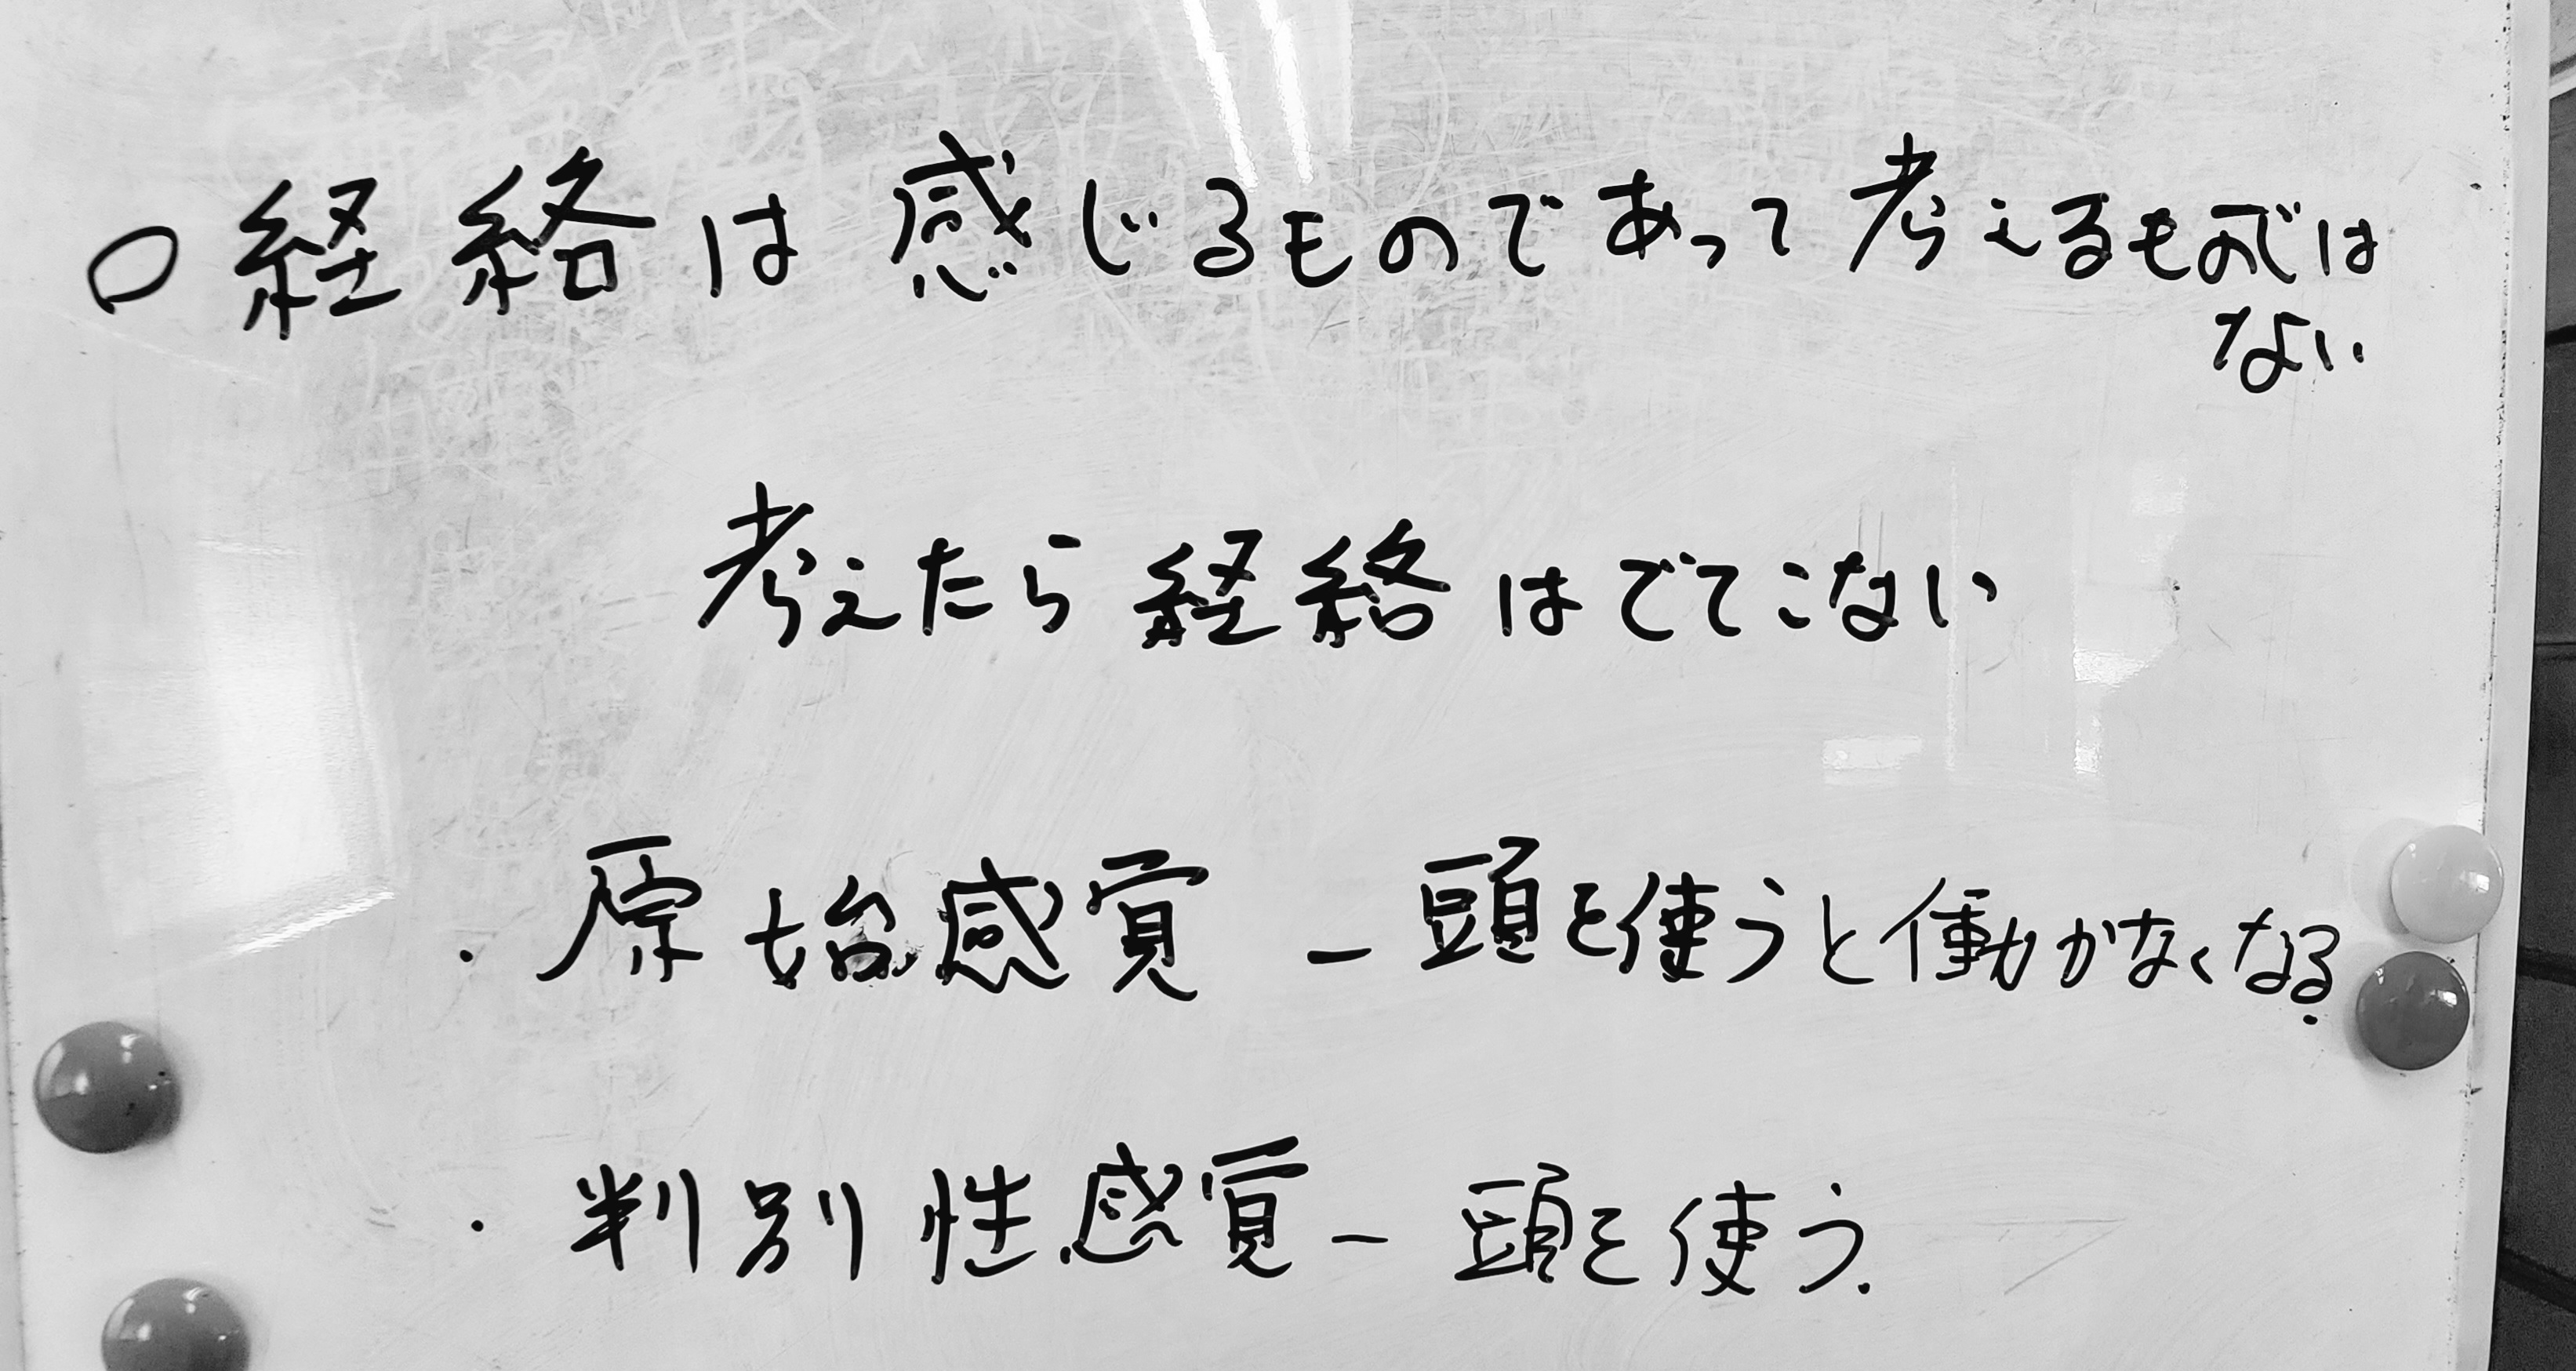 ○経絡は感じるものであって考えるものではない
考えたら経絡はでてこない
・原始感覚 ー 頭を使うと働かなくなる.
・判別性感覚 ー 頭を使う.